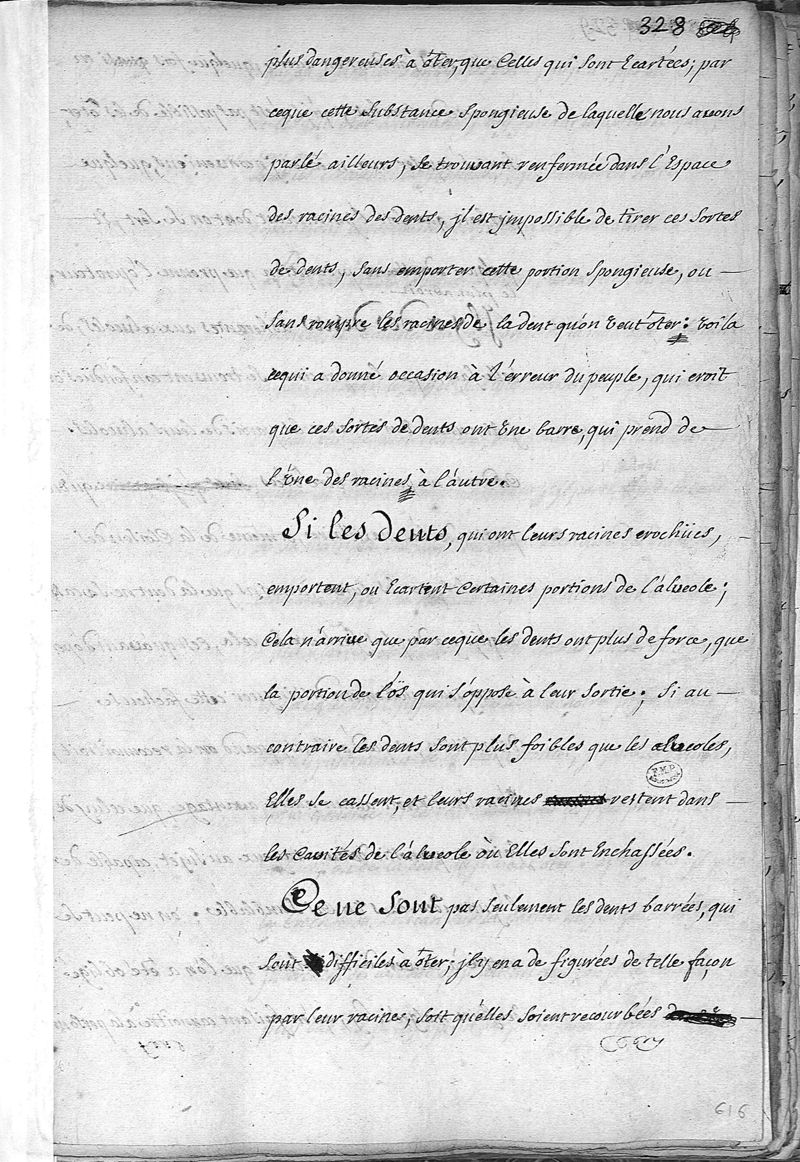 328
plus dangereuses à ôter, que Celles qui sont Ecartées; par
ceque cette Substance Spongieuse de laquelle nous auons
parlé ailleurs, se trouvant renfermée dans l'Espace
des racines des dents, jl est jmpossible de tirer ces sortes
de dents, sans emporter cette portion Spongieuse, ou —
sans rompre les racines de la dent qu'on veut ôter: voila
cequi a donné occasion à l'érreur du peuple, qui croit
que ces sortes de dents ont Vne barre, qui prend de —
l'Vne des racines à l'aûtre.
Si les dents, qui ont leurs racines crochües, —
emportent, ou Ecartent Certaines portions de l'alueole;
Cela n'arriue que par ceque les dents ont plus de force, que
la portion de l'os qui s'oppose à leur sortie; Si au —
contraire les dents sont plus foibles que les alueoles,
Elles se cassent, et leurs racines restent dans —
les Cauités de l'alueole où Elles sont Enchassées.
Ce ne sont pas seulement les dents barrées, qui
sont difficiles à ôter; jl y en a de figurées de telle façon
par leur racine, soit qu'elles soient recourbées —
616